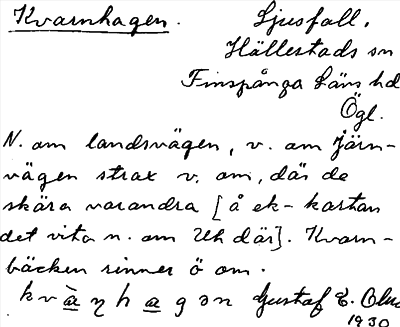 Kvarnhagen. Ljusfall.
Hällestads sn
Finspånga Läns hd
Ögl.
N. om landsvägen, v. om järn-
vägen strax v. om, där de
skära varandra [å ek-kartan
det vita n. om Uh där]. Kvarn-
bäcken rinner ö om.
kvàŋhagən Gustaf E.
1930